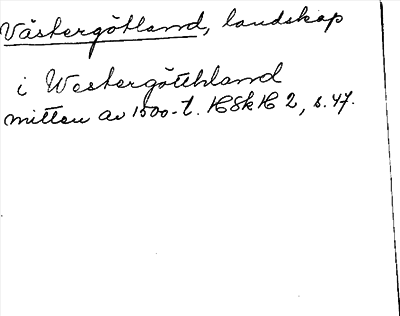 Västergötland, landskap
i Westergöthland
mitten av 1500-t. HSkH 2, s. 47.